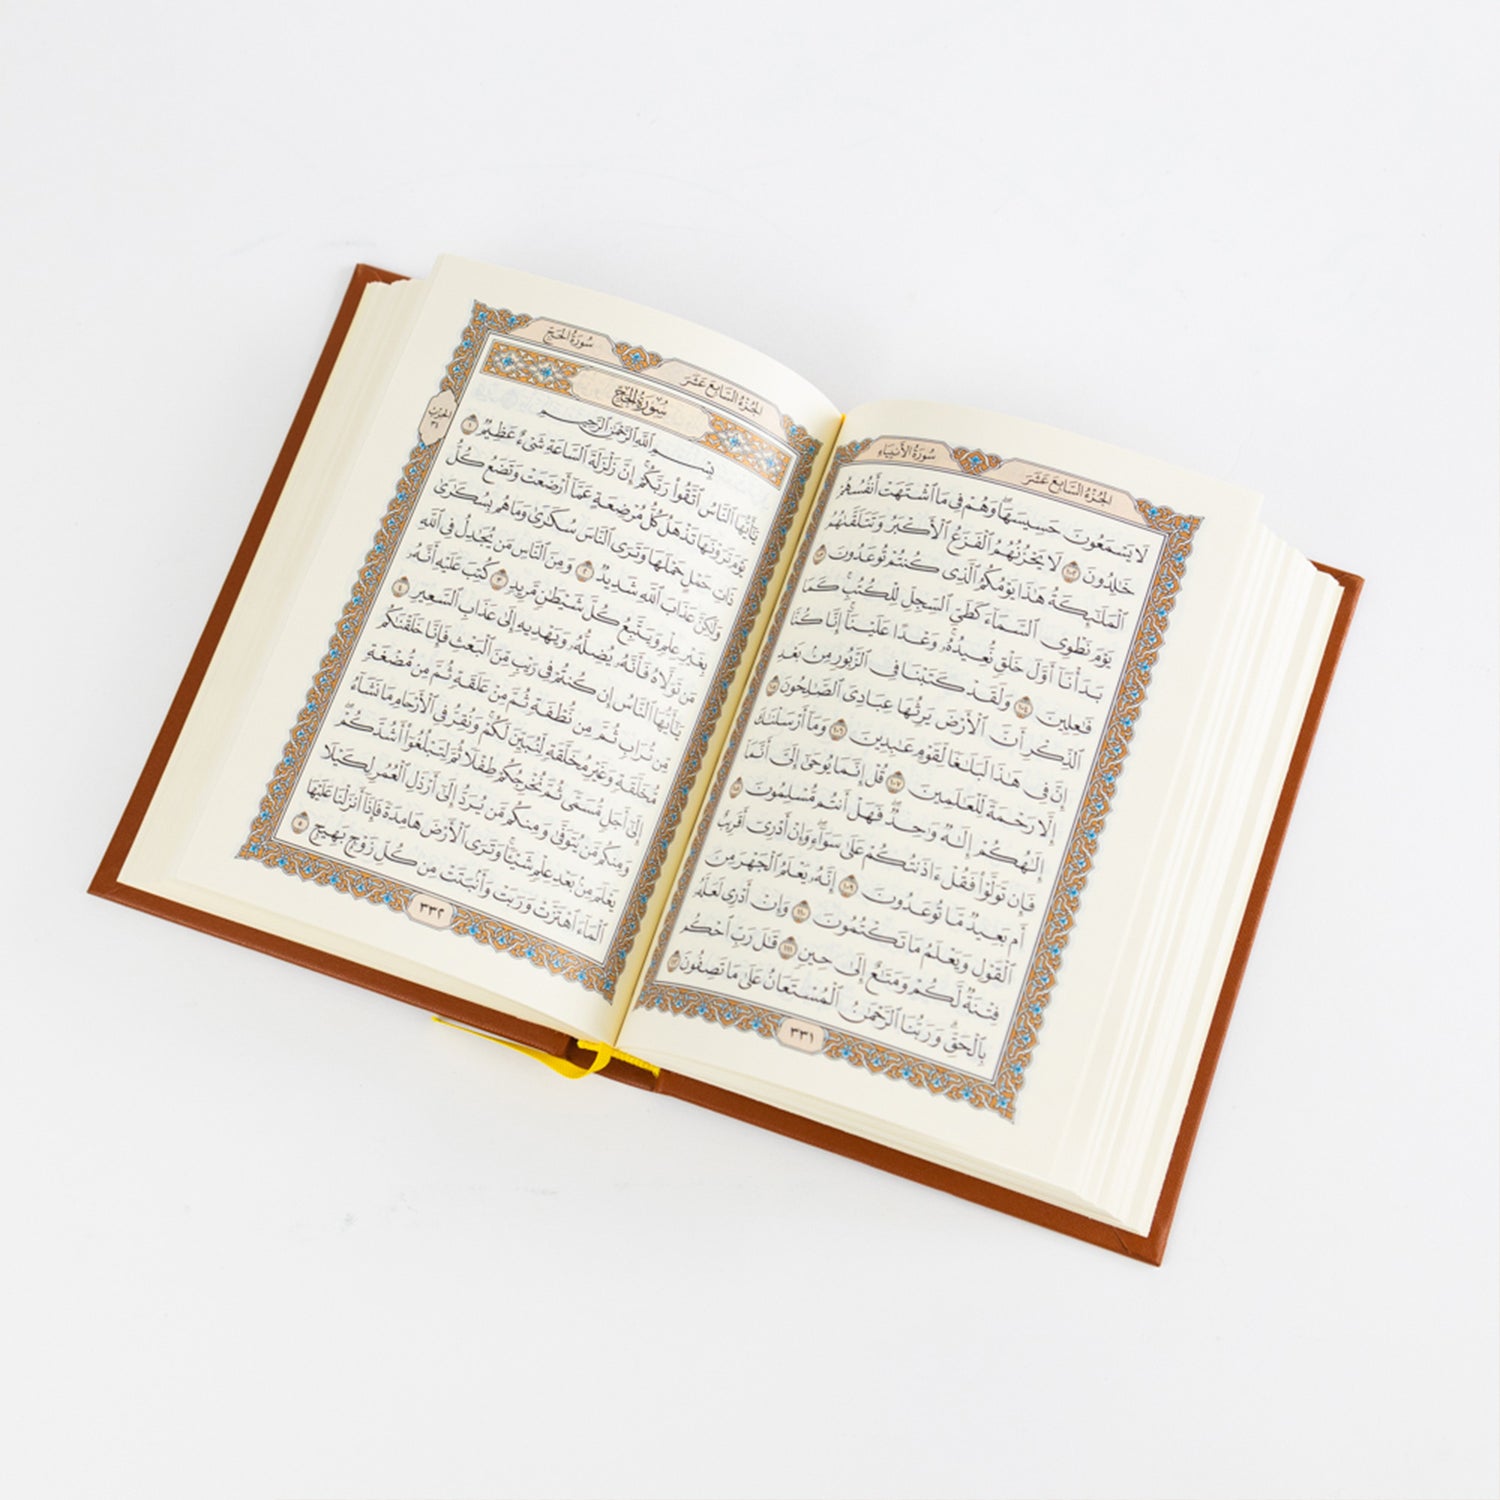 الجُزْءُ السَّابِعَ عَشَرَ سُورَةُ الأَنبِيَاءِ
لَا يَسْمَعُونَ حَسِيسَهَا ۖ وَهُمْ فِى مَا ٱشْتَهَتْ أَنفُسُهُمْ
خَٰلِدُونَ ١٠٢ لَا يَحْزُنُهُمُ ٱلْفَزَعُ ٱلْأَكْبَرُ وَتَتَلَقَّىٰهُمُ
ٱلْمَلَٰٓئِكَةُ هَٰذَا يَوْمُكُمُ ٱلَّذِى كُنتُمْ تُوعَدُونَ ١٠٣
يَوْمَ نَطْوِى ٱلسَّمَآءَ كَطَىِّ ٱلسِّجِلِّ لِلْكُتُبِ ۚ كَمَا
بَدَأْنَآ أَوَّلَ خَلْقٍ نُّعِيدُهُۥ ۚ وَعْدًا عَلَيْنَآ ۚ إِنَّا كُنَّا
فَٰعِلِينَ ١٠٤ وَلَقَدْ كَتَبْنَا فِى ٱلزَّبُورِ مِنۢ بَعْدِ
ٱلذِّكْرِ أَنَّ ٱلْأَرْضَ يَرِثُهَا عِبَادِىَ ٱلصَّٰلِحُونَ ١٠٥
إِنَّ فِى هَٰذَا لَبَلَٰغًا لِّقَوْمٍ عَٰبِدِينَ ١٠٦ وَمَآ أَرْسَلْنَٰكَ
إِلَّا رَحْمَةً لِّلْعَٰلَمِينَ ١٠٧ قُلْ إِنَّمَا يُوحَىٰٓ إِلَىَّ أَنَّمَآ
إِلَٰهُكُمْ إِلَٰهٌ وَٰحِدٌ ۖ فَهَلْ أَنتُم مُّسْلِمُونَ ١٠٨
فَإِن تَوَلَّوْا۟ فَقُلْ ءَاذَنتُكُمْ عَلَىٰ سَوَآءٍ ۖ وَإِنْ أَدْرِىٓ أَقَرِيبٌ
أَم بَعِيدٌ مَّا تُوعَدُونَ ١٠٩ إِنَّهُۥ يَعْلَمُ ٱلْجَهْرَ مِنَ
ٱلْقَوْلِ وَيَعْلَمُ مَا تَكْتُمُونَ ١١٠ وَإِنْ أَدْرِى لَعَلَّهُۥ
فِتْنَةٌ لَّكُمْ وَمَتَٰعٌ إِلَىٰ حِينٍ ١١١ قَٰلَ رَبِّ ٱحْكُم
بِٱلْحَقِّ ۗ وَرَبُّنَا ٱلرَّحْمَٰنُ ٱلْمُسْتَعَانُ عَلَىٰ مَا تَصِفُونَ ١١٢
٣٣١
الجُزْءُ السَّابِعَ عَشَرَ سُورَةُ الحَجِّ
سُورَةُ الحَجِّ
بِسْمِ ٱللَّهِ ٱلرَّحْمَٰنِ ٱلرَّحِيمِ
يَٰٓأَيُّهَا ٱلنَّاسُ ٱتَّقُوا۟ رَبَّكُمْ ۚ إِنَّ زَلْزَلَةَ ٱلسَّاعَةِ شَىْءٌ عَظِيمٌ ١
يَوْمَ تَرَوْنَهَا تَذْهَلُ كُلُّ مُرْضِعَةٍ عَمَّآ أَرْضَعَتْ وَتَضَعُ كُلُّ
ذَاتِ حَمْلٍ حَمْلَهَا وَتَرَى ٱلنَّاسَ سُكَٰرَىٰ وَمَا هُم بِسُكَٰرَىٰ
وَلَٰكِنَّ عَذَابَ ٱللَّهِ شَدِيدٌ ٢ وَمِنَ ٱلنَّاسِ مَن يُجَٰدِلُ فِى ٱللَّهِ
بِغَيْرِ عِلْمٍ وَيَتَّبِعُ كُلَّ شَيْطَٰنٍ مَّرِيدٍ ٣ كُتِبَ عَلَيْهِ أَنَّهُۥ
مَن تَوَلَّاهُ فَأَنَّهُۥ يُضِلُّهُۥ وَيَهْدِيهِ إِلَىٰ عَذَابِ ٱلسَّعِيرِ ٤
يَٰٓأَيُّهَا ٱلنَّاسُ إِن كُنتُمْ فِى رَيْبٍ مِّنَ ٱلْبَعْثِ فَإِنَّا خَلَقْنَٰكُم
مِّن تُرَابٍ ثُمَّ مِن نُّطْفَةٍ ثُمَّ مِنْ عَلَقَةٍ ثُمَّ مِن مُّضْغَةٍ
مُّخَلَّقَةٍ وَغَيْرِ مُخَلَّقَةٍ لِّنُبَيِّنَ لَكُمْ ۚ وَنُقِرُّ فِى ٱلْأَرْحَامِ مَا نَشَآءُ
إِلَىٰٓ أَجَلٍ مُّسَمًّى ثُمَّ نُخْرِجُكُمْ طِفْلًا ثُمَّ لِتَبْلُغُوٓا۟ أَشُدَّكُمْ ۖ
وَمِنكُم مَّن يُتَوَفَّىٰ وَمِنكُم مَّن يُرَدُّ إِلَىٰٓ أَرْذَلِ ٱلْعُمُرِ لِكَيْلَا
يَعْلَمَ مِنۢ بَعْدِ عِلْمٍ شَيْـًٔا ۚ وَتَرَى ٱلْأَرْضَ هَامِدَةً فَإِذَآ أَنزَلْنَا عَلَيْهَا
ٱلْمَآءَ ٱهْتَزَّتْ وَرَبَتْ وَأَنۢبَتَتْ مِن كُلِّ زَوْجٍۭ بَهِيجٍ ٥
الحِزْبُ ٣٤
٣٣٢